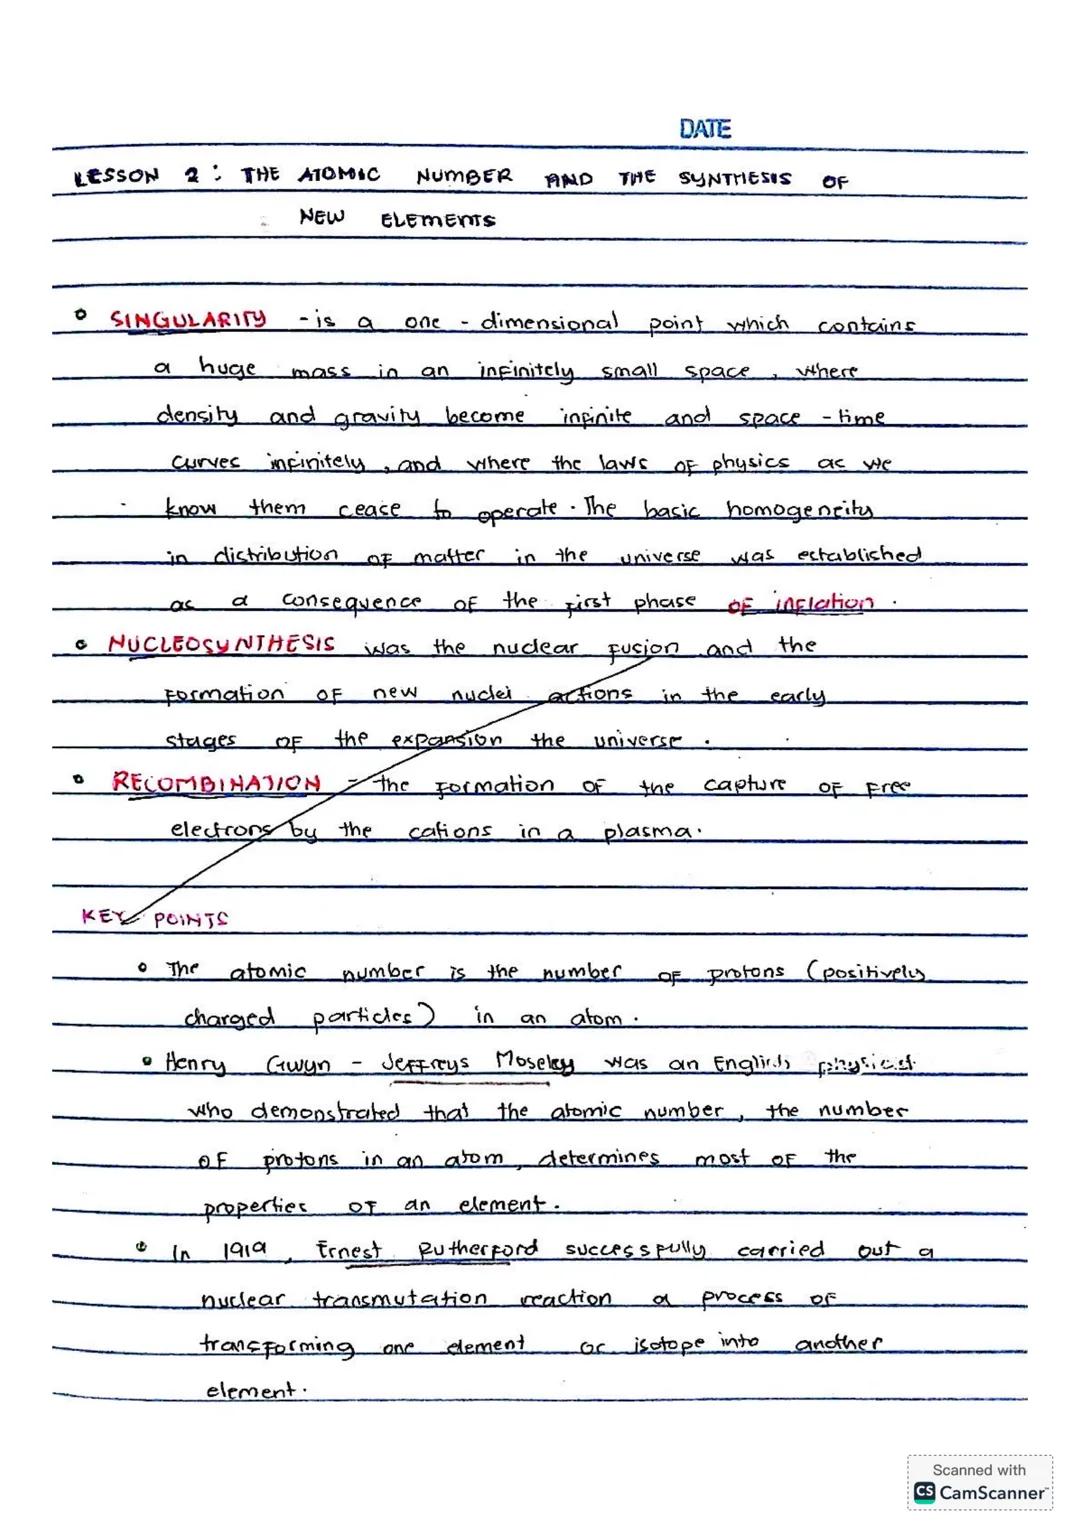 DATE
LESSON 2: THE ATOMIC NUMBER AND THE SYNTHESIS OF
NEW ELEMENTS
SINGULARITY - is a one - dimensional point which contains
a huge mass in an infinitely small space, where
density and gravity become infinite and space - time
curves infinitely, and where the laws of physics as we
know them cease to operate. The basic homogeneity
in distribution of matter in the universe was established
as a consequence of the first phase of inflation.
NUCLEOSYNTHESIS was the nuclear fusion and the
formation of new nuclei actions in the early
stages of the expansion the universe.
RECOMBINATION - the formation of the capture of free
electrons by the cations in a plasma.
KEY POINTS
The atomic number is the number of protons (positively
charged particles) in an atom.
Henry Gwyn - Jeffreys Moseley was an English physicist
who demonstrated that the atomic number, the number
of protons in an atom, determines most of the
properties of an element.
In 1919, Ernest Rutherford successfully carried out a
nuclear transmutation reaction a process of
transforming one element or isotope into another
element.
Scanned with
CS CamScanner